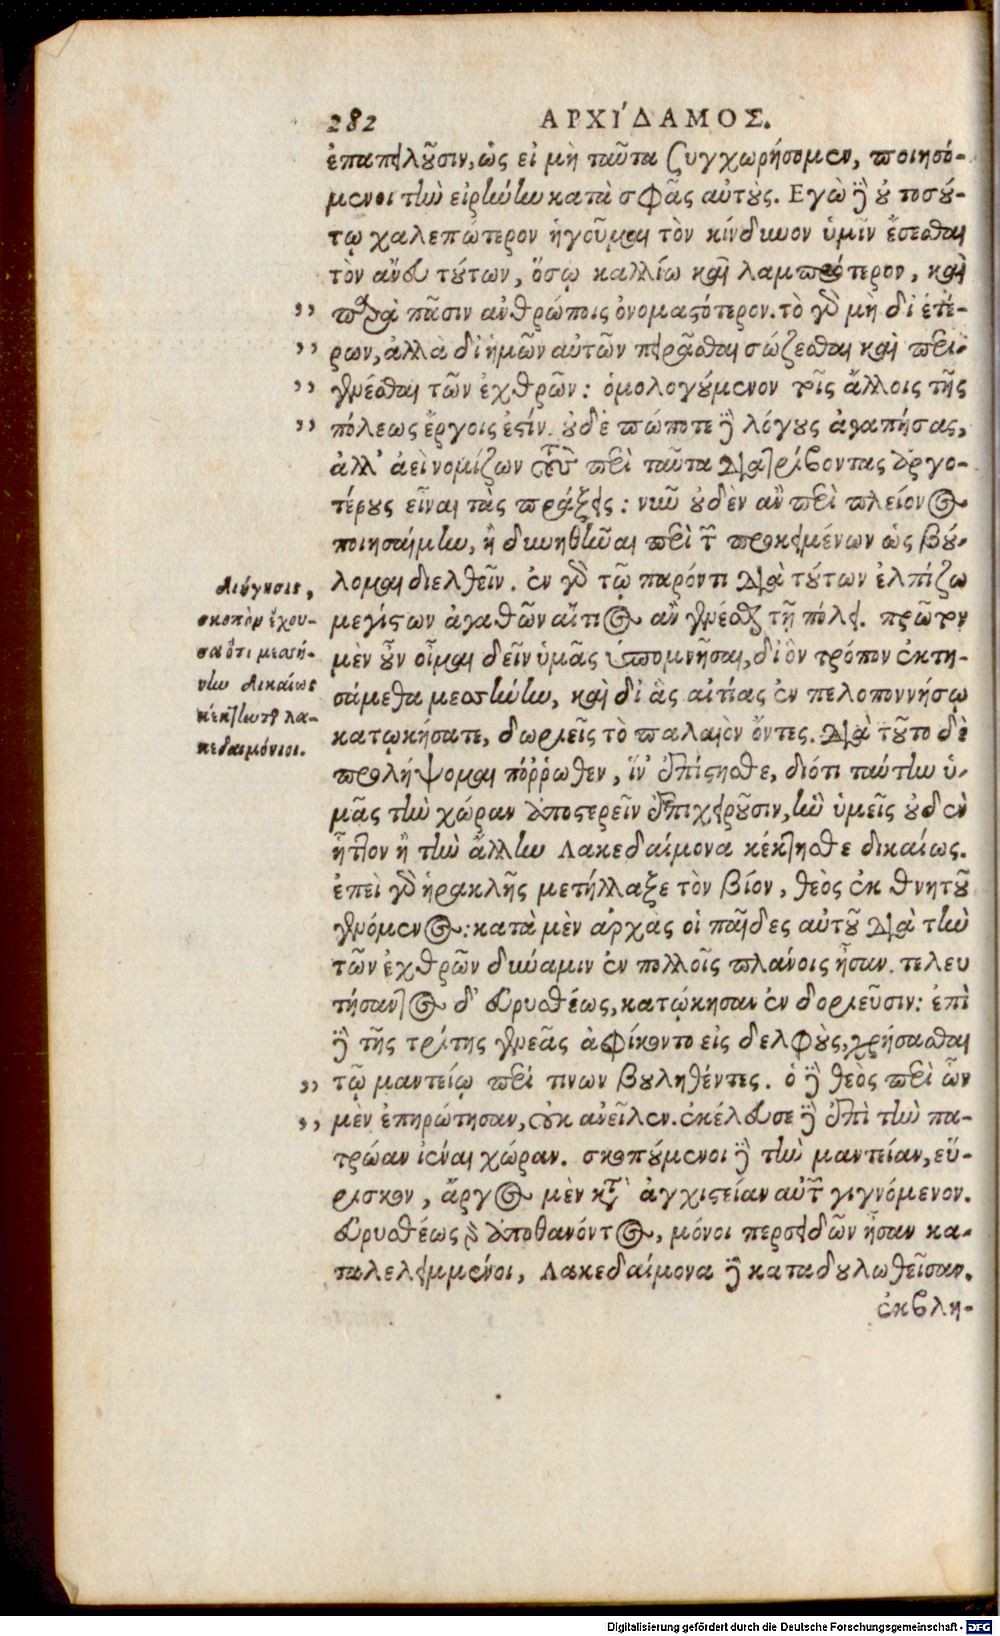 282 ΑΡΧΊΔΑΜΟΣ.
ἐπαπειλοῦσιν, ὡς εἰ μὴ ταῦτα ζυγχωρήσομεν, ποιησό-
μενοι τὴν εἰρήνην κατὰ σφᾶς αὐτούς. Εγὼ δὲ οὐ τοσού-
τῳ χαλεπώτερον ἡγοῦμαι τὸν κίνδυνον ὑμῖν ἔσεσθαι
τὸν ἄνευ τούτων, ὅσῳ καλλίω καὶ λαμπρότερον, καὶ
,, παρὰ πᾶσιν ἀνθρώποις ὀνομαστότερον. τὸ γὰρ μὴ δι' ἑτέ-
,, ρων, ἀλλὰ δι' ἡμῶν αὐτῶν πειρᾶσθαι σώζεσθαι καὶ περι-
,, γενέσθαι τῶν ἐχθρῶν: ὁμολογούμενον τοῖς ἄλλοις τῆς
,, πόλεως ἔργοις ἐστίν. οὐδὲ πώποτε δὲ λόγους ἀγαπήσας,
ἀλλ' ἀεὶ νομίζων τοὺς περὶ ταῦτα διατρίβοντας ἀργο-
τέρους εἶναι τὰς πράξεις: νῦν οὐδὲν ἂν περὶ πλείονος
ποιησαίμην, ἢ δυνηθῆναι περὶ τῶν προκειμένων ὡς βού-
λομαι διελθεῖν. ἐν γὰρ τῷ παρόντι διὰ τούτων ἐλπίζω
μεγίστων ἀγαθῶν αἴτιος ἂν γενέσθαι τῇ πόλει. πρῶτον
μὲν οὖν οἶμαι δεῖν ὑμᾶς ὑπομνῆσαι, δι' ὃν τρόπον ἐκτη-
σάμεθα μεσσήνην, καὶ δι' ἃς αἰτίας ἐν πελοποννήσῳ
κατῳκήσατε, δωριεῖς τὸ παλαιὸν ὄντες. διὰ τοῦτο δὲ
προλήψομαι πόῤῥωθεν, ἵν' ἐπίστησθε, διότι ταύτην ὑ-
μᾶς τὴν χώραν ἀποστερεῖν ἐπιχειροῦσιν, ἣν ὑμεῖς οὐδὲν
ἧττον ἢ τὴν ἄλλην Λακεδαίμονα κέκτησθε δικαίως.
ἐπεὶ γὰρ ἡρακλῆς μετήλλαξε τὸν βίον, θεὸς ἐκ θνητοῦ
γενόμενος: κατὰ μὲν ἀρχὰς οἱ παῖδες αὐτοῦ διὰ τὴν
τῶν ἐχθρῶν δύναμιν ἐν πολλοῖς πλάνοις ἦσαν. τελευ
τήσαντος δ' Εὐρυσθέως, κατῴκησαν ἐν δωριεῦσιν: ἐπὶ
δὲ τῆς τρίτης γενεᾶς ἀφίκοντο εἰς δελφούς, χρήσασθαι
,, τῷ μαντείῳ περί τινων βουληθέντες. ὁ δὲ θεὸς περὶ ὧν
,, μὲν ἐπηρώτησαν, οὐκ ἀνεῖλεν. ἐκέλευσε δὲ ἐπὶ τὴν πα-
τρῴαν ἰέναι χώραν. σκοπούμενοι δὲ τὴν μαντείαν, εὕ-
ρισκον, ἄργος μὲν κατ' ἀγχιστείαν αὐτῶν γιγνόμενον.
Εὐρυσθέως γὰρ ἀποθανόντος, μόνοι περσειδῶν ἦσαν κα-
ταλελειμμένοι, Λακεδαίμονα δὲ καταδουλωθεῖσαν.
ἐκβλη-
Διήγησις,
σκοπὸν ἔχου-
σα ὅτι μεσσή-
νην δικαίως
κέκτηντο λα-
κεδαιμόνιοι.
Digitalisierung gefördert durch die Deutsche Forschungsgemeinschaft - DFG